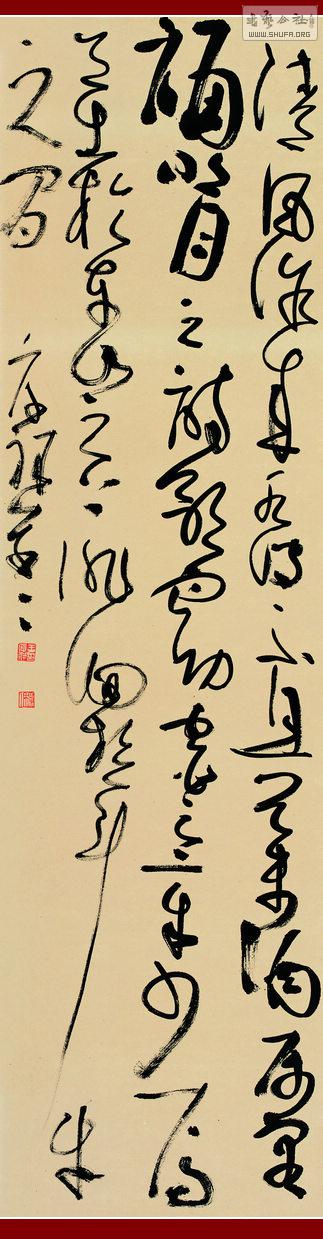 書藝公社
WWW.SHUFA.ORG
清風徐來水波不興舉酒屬客
誦明月之詩歌窈窕之章少焉
月出於東山之上徘徊於斗牛
之間